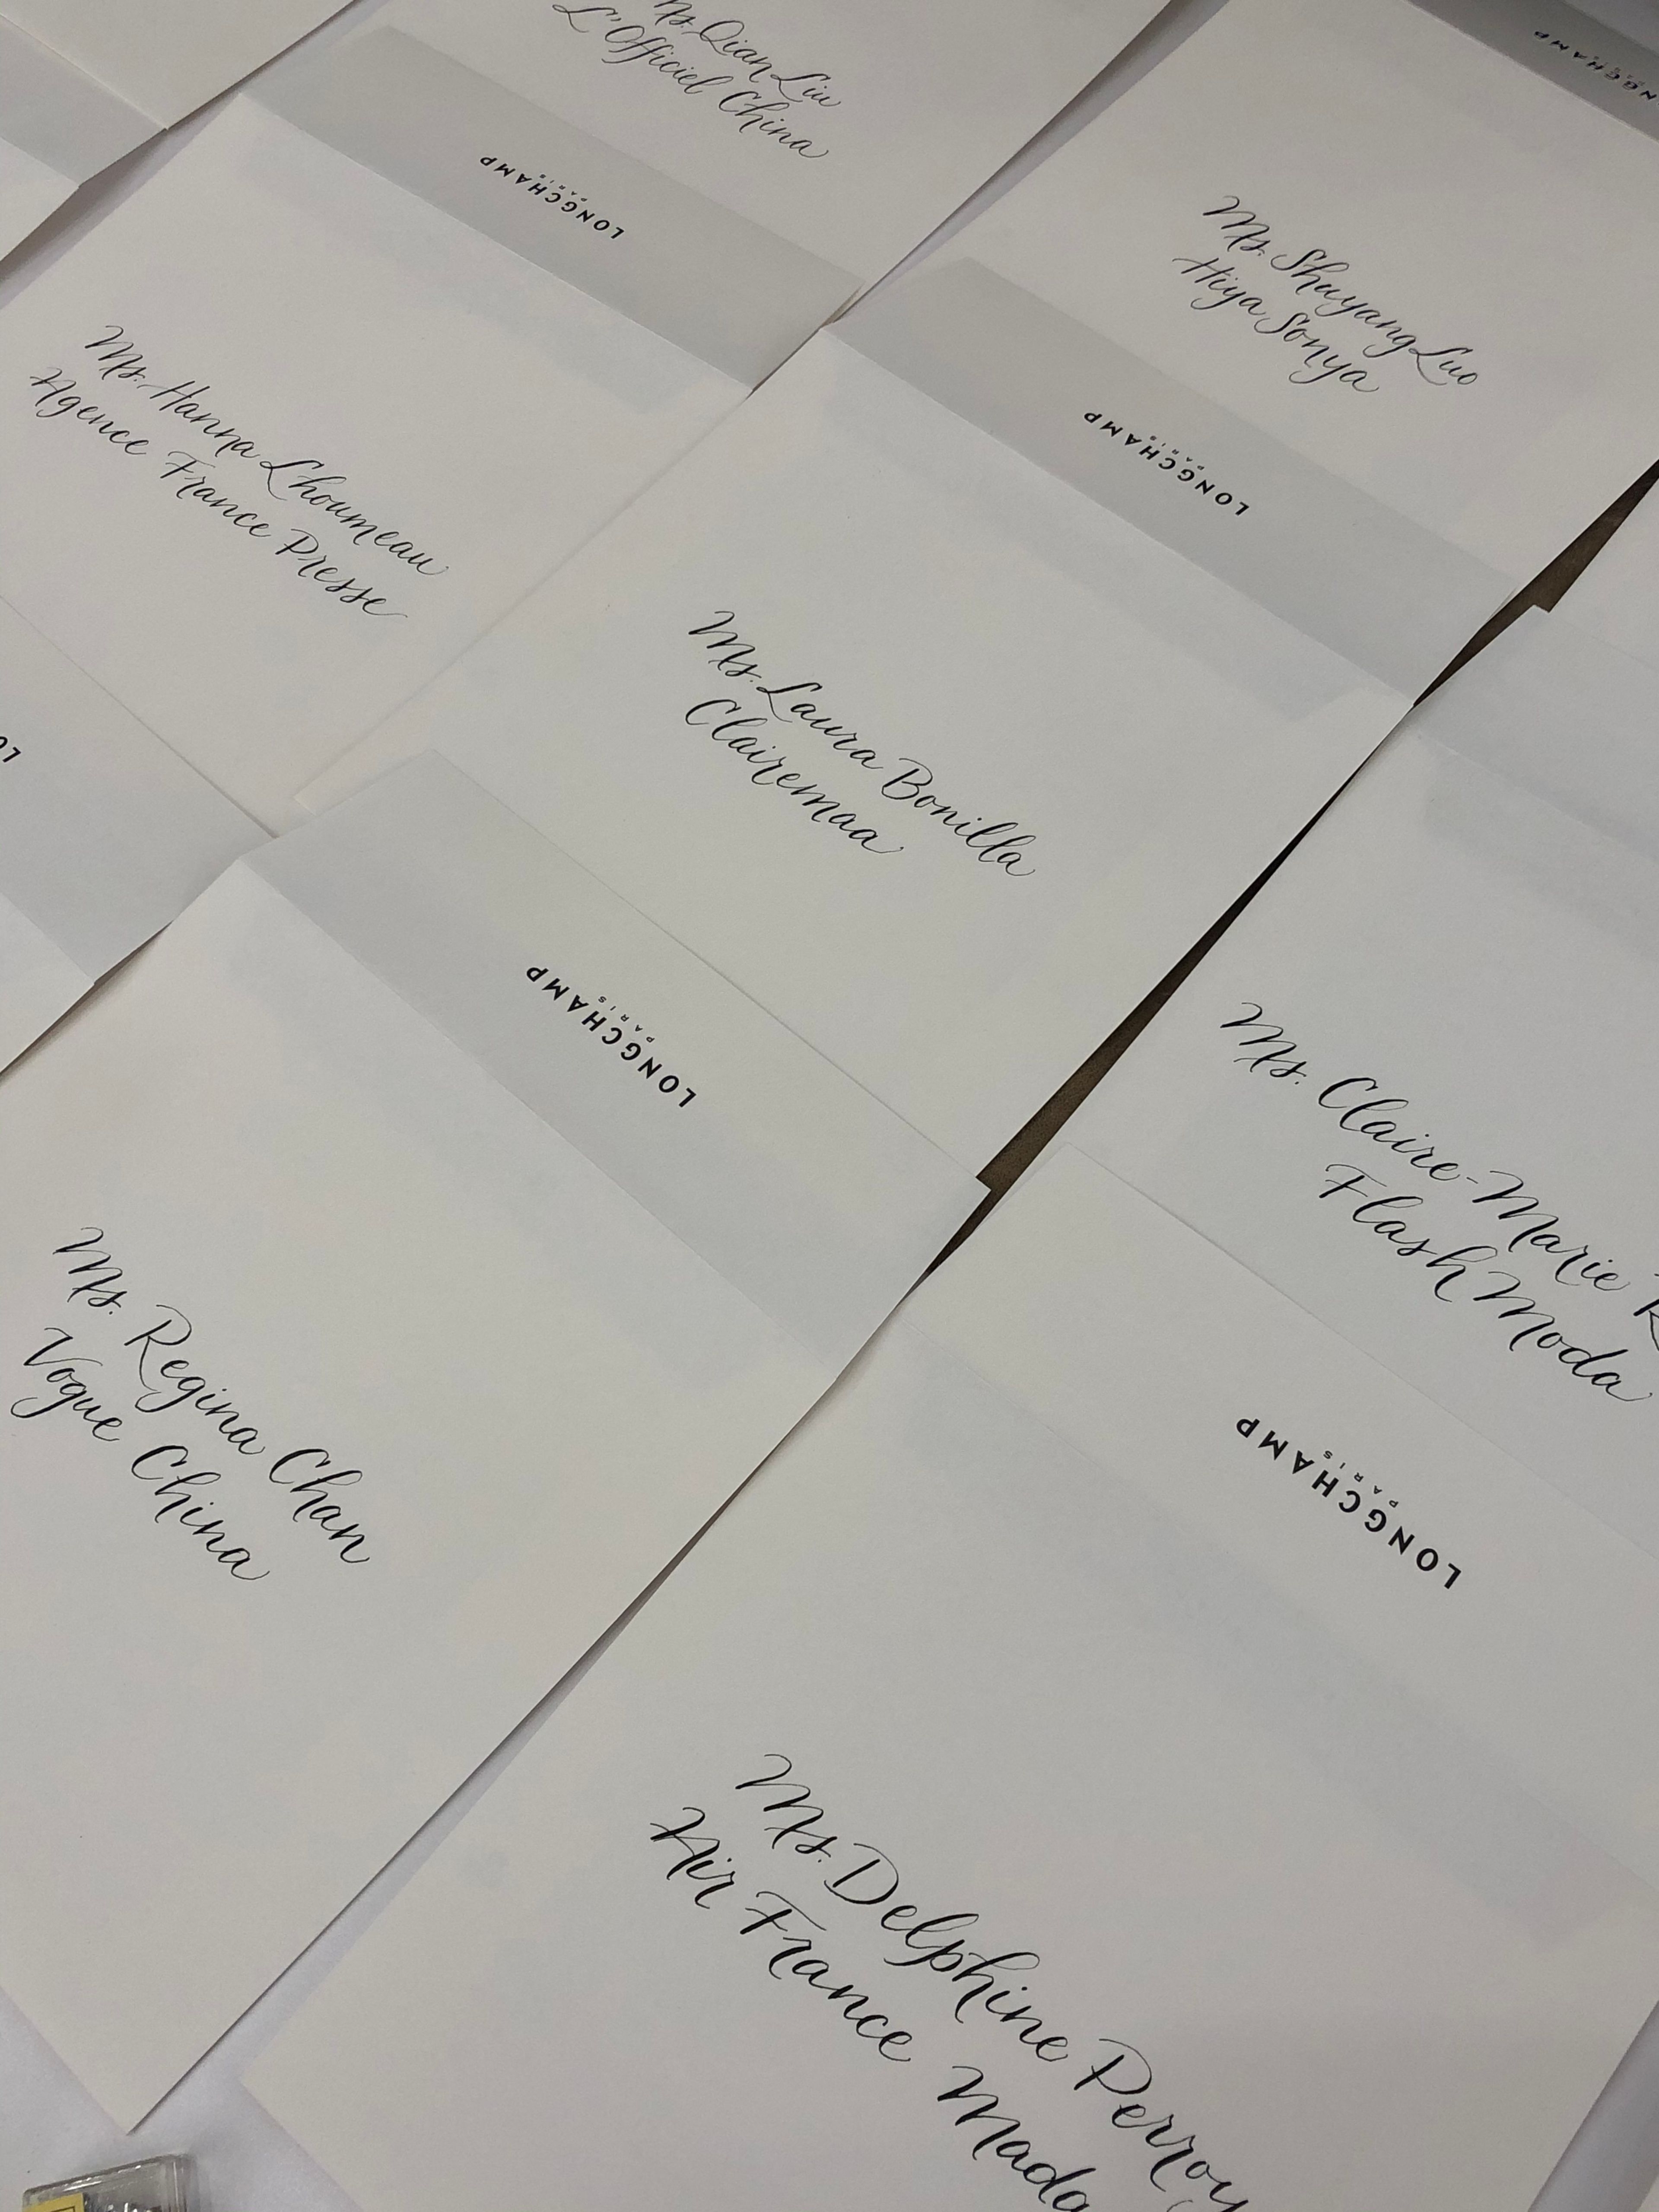 Ms. Qian Liu
L'Officiel China
LONGCHAMP
PARIS
Ms. Shuyang Luo
Hiya Sonya
LONGCHAMP
PARIS
LONGCHAMP
PARIS
Ms. Hanna Lhoumeau
Agence France Presse
Ms. Laura Bonilla
Clairemaa
LONGCHAMP
PARIS
Ms. Claire-Marie
Flash Moda
Ms. Regina Chan
Vogue China
LONGCHAMP
PARIS
Ms. Delphine Perroy
Air France Mada